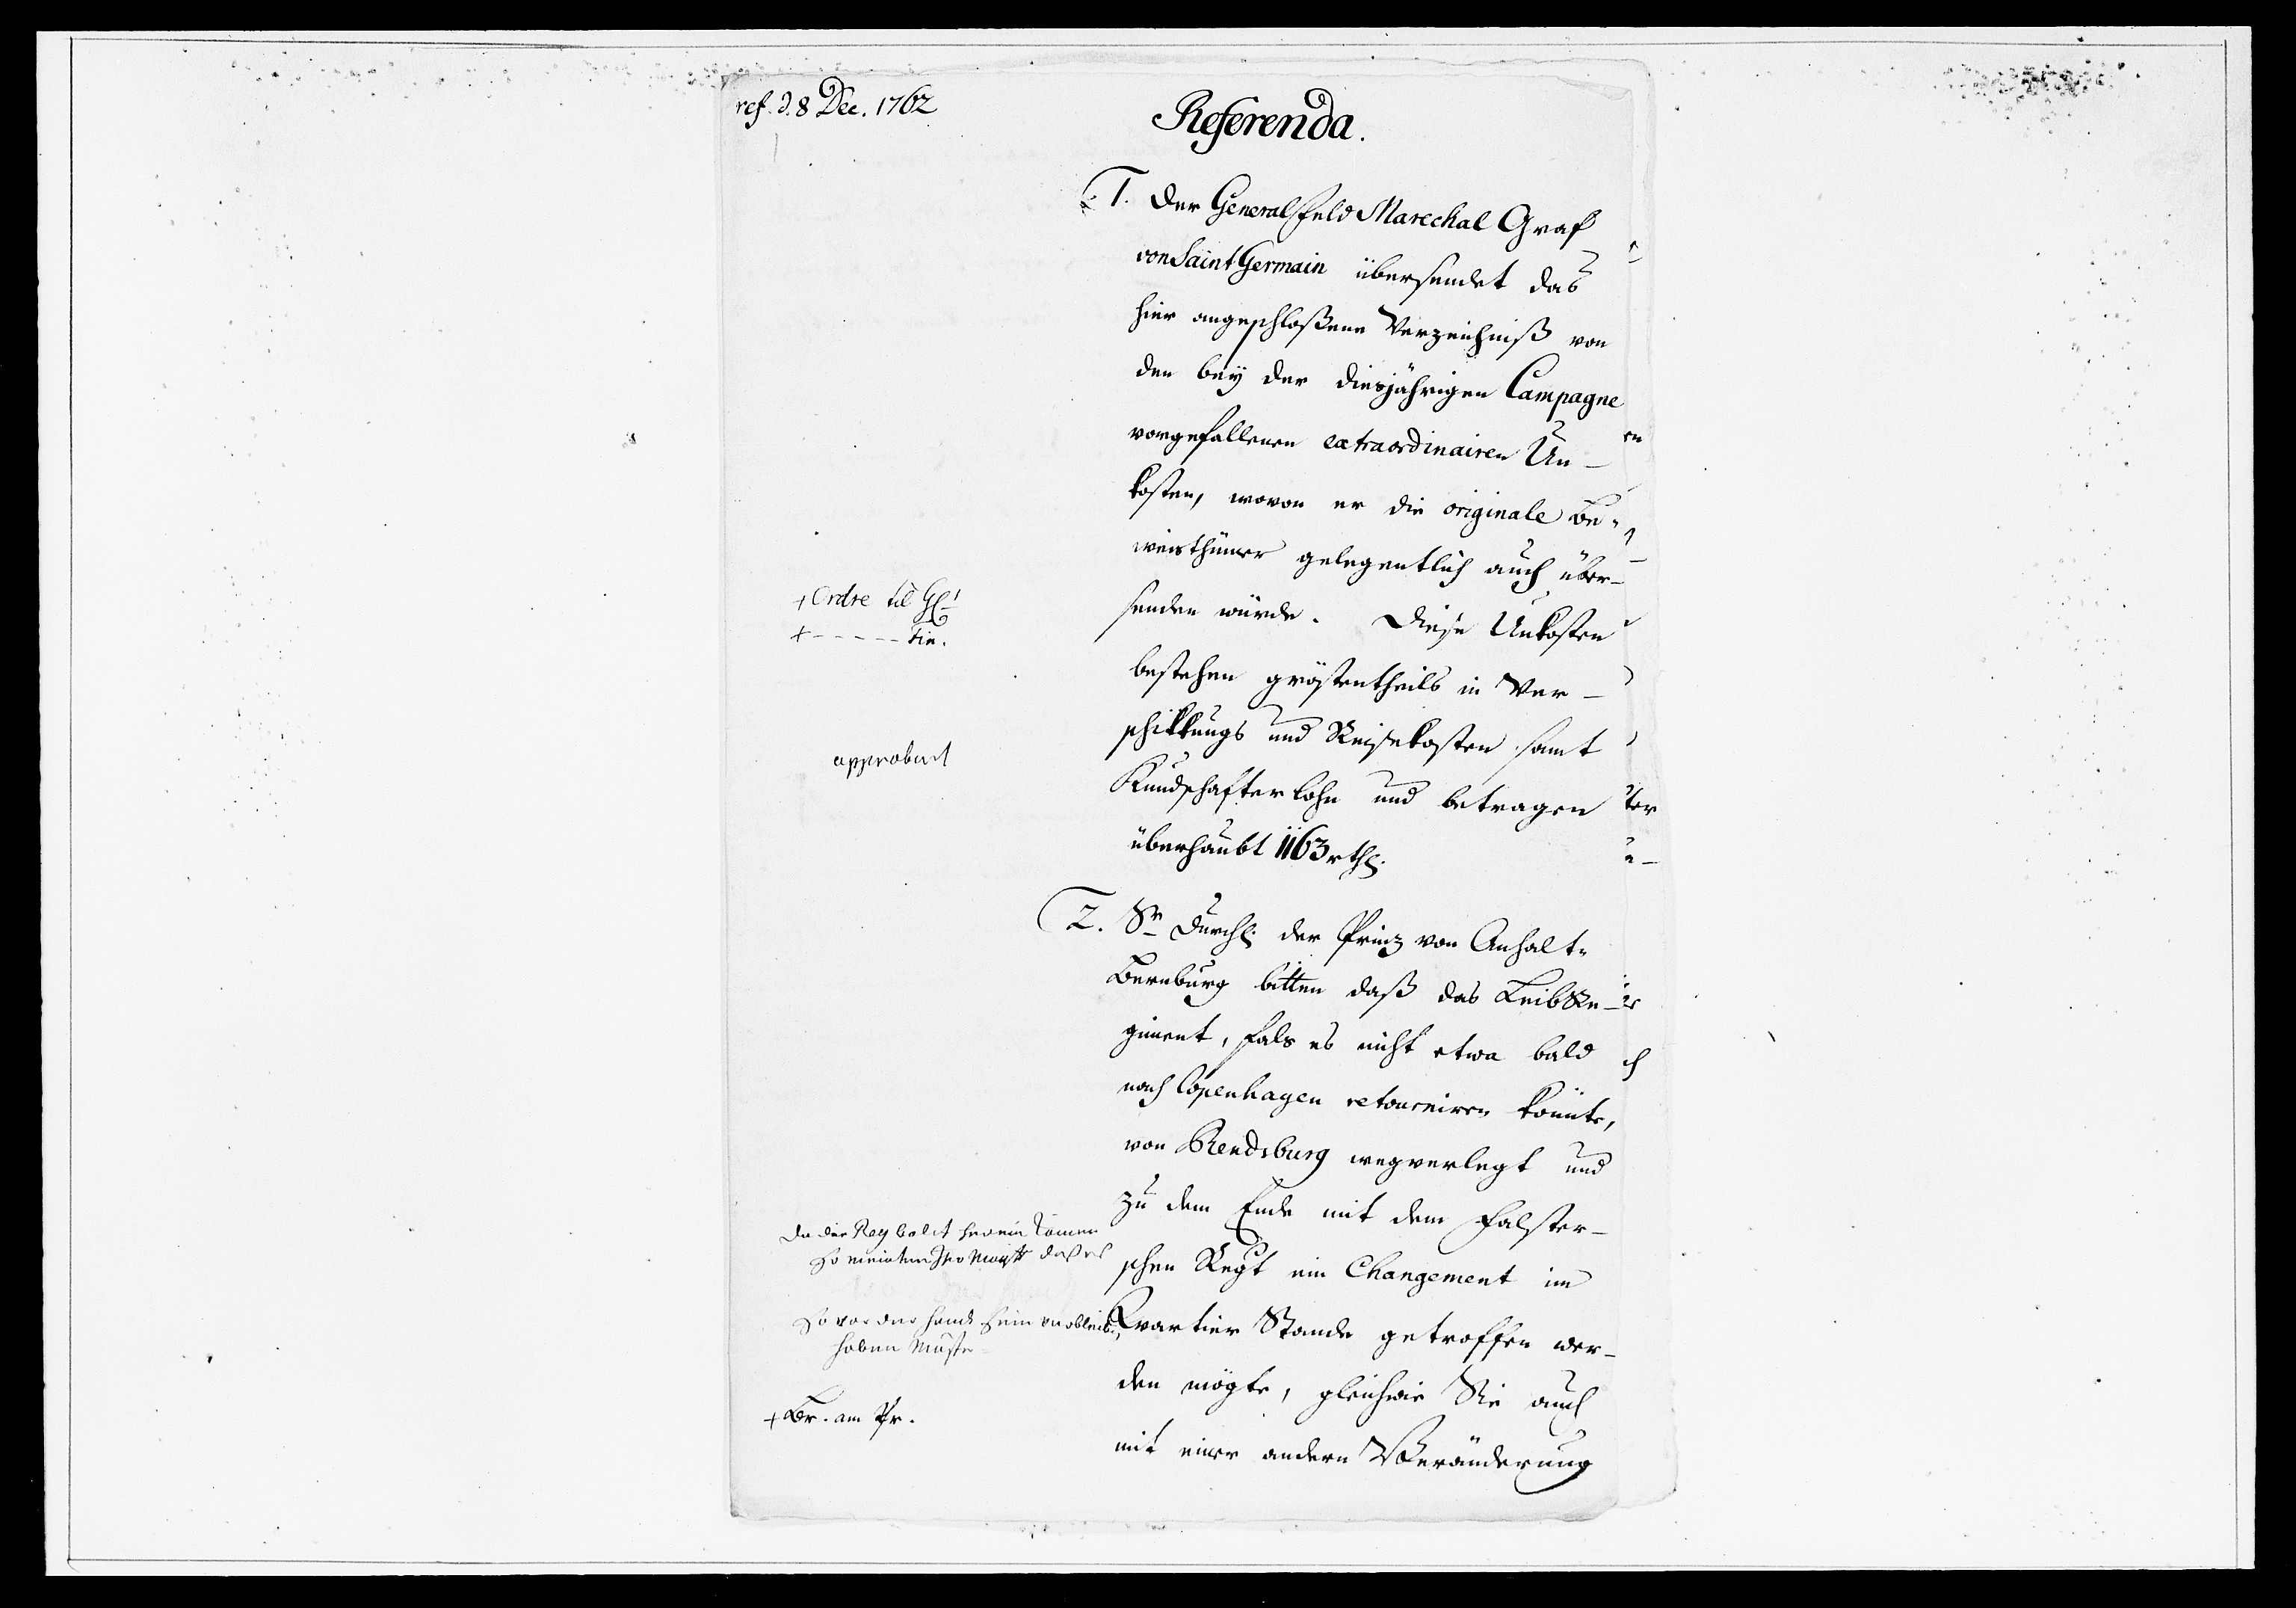 ref. d. 8 Dec. 1762
Referenda.
1. Der General Feld Marechal Graf
von Saint Germain übersendet das
hier angeschloßene Verzeichniß von
den beÿ der diesjährigen Campagne
vorgefallenen extraordinairen Un-
kosten, wovon er die originale Be-
weisthümer gelegentlich auch über-
senden würde. Diese Unkosten
bestehen gröstentheils in Ver-
schikkungs und Reisekosten samt
Kundschafterlohn und betragen
überhaubt 1163 rthl.
+ Ordre til
+ - - - - -
approbirt
2. Sr Durchl. der Prinz von Anhalt-
Bernburg bitten daß das LeibRe-
giment, fals es nicht etwa bald
nach Copenhagen retourniren könte,
von Rendsburg wegverlegt und
zu dem Ende mit dem Falster-
schen Regt ein Changement im
Qvartier Stande getroffen wer-
den mögte, gleichwie Sie auch
mit einer andern Veränderung
da die Reg bald herein kämen
so meinten Ihro Maytt daß es
so vor der hand sein verbleib.
haben müste
+ Br. am Pr.